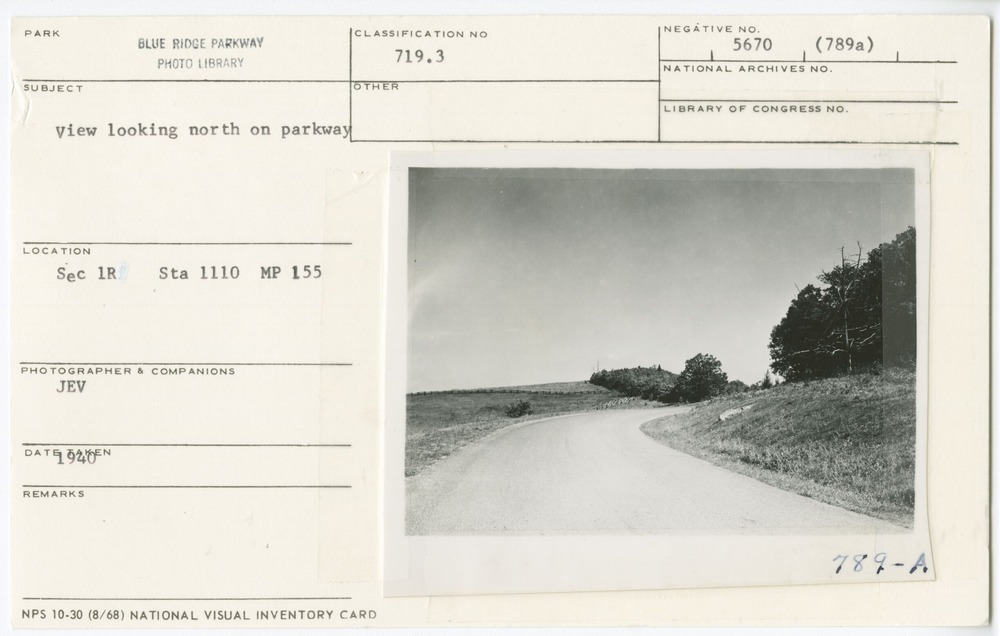 PARK
BLUE RIDGE PARKWAY
PHOTO LIBRARY
CLASSIFICATION NO
719.3
NEGATIVE NO.
5670 (789a)
NATIONAL ARCHIVES NO.
SUBJECT
OTHER
LIBRARY OF CONGRESS NO.
view looking north on parkway
LOCATION
Sec 1R Sta 1110 MP 155
PHOTOGRAPHER & COMPANIONS
JEV
DATE TAKEN
1940
REMARKS
789-A
NPS 10-30 (8/68) NATIONAL VISUAL INVENTORY CARD